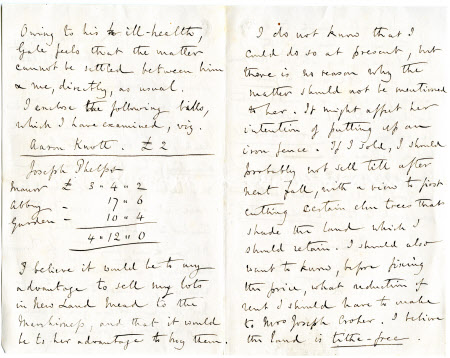 Owing to his ill-health,
Gale feels that the matter
cannot be settled between him
& me, directly, as usual.
I enclose the following bills,
which I have examined, viz.
Aaron Knott. £2
Joseph Phelps
Manor £ 3 " 4 " 2
Abby - 17 " 6
Gurden - 10 " 4
4 " 12 " 0
I believe it would be to my
advantage to sell my lots
in New Land Mead to the
Marchioness, and that it would
be to her advantage to buy them.
I do not know that I
could do so at present, but
there is no reason why the
matter should not be mentioned
to her. It might affect her
intention of putting up an
iron fence. If I sold, I should
probably not sell till after
next fall, with a view to first
cutting certain elm trees that
shade the land which I
should retain. I should also
want to know, before fixing
the price, what reduction of
rent I should have to make
to Mrs Joseph Croker. I believe
the land is tithe-free.